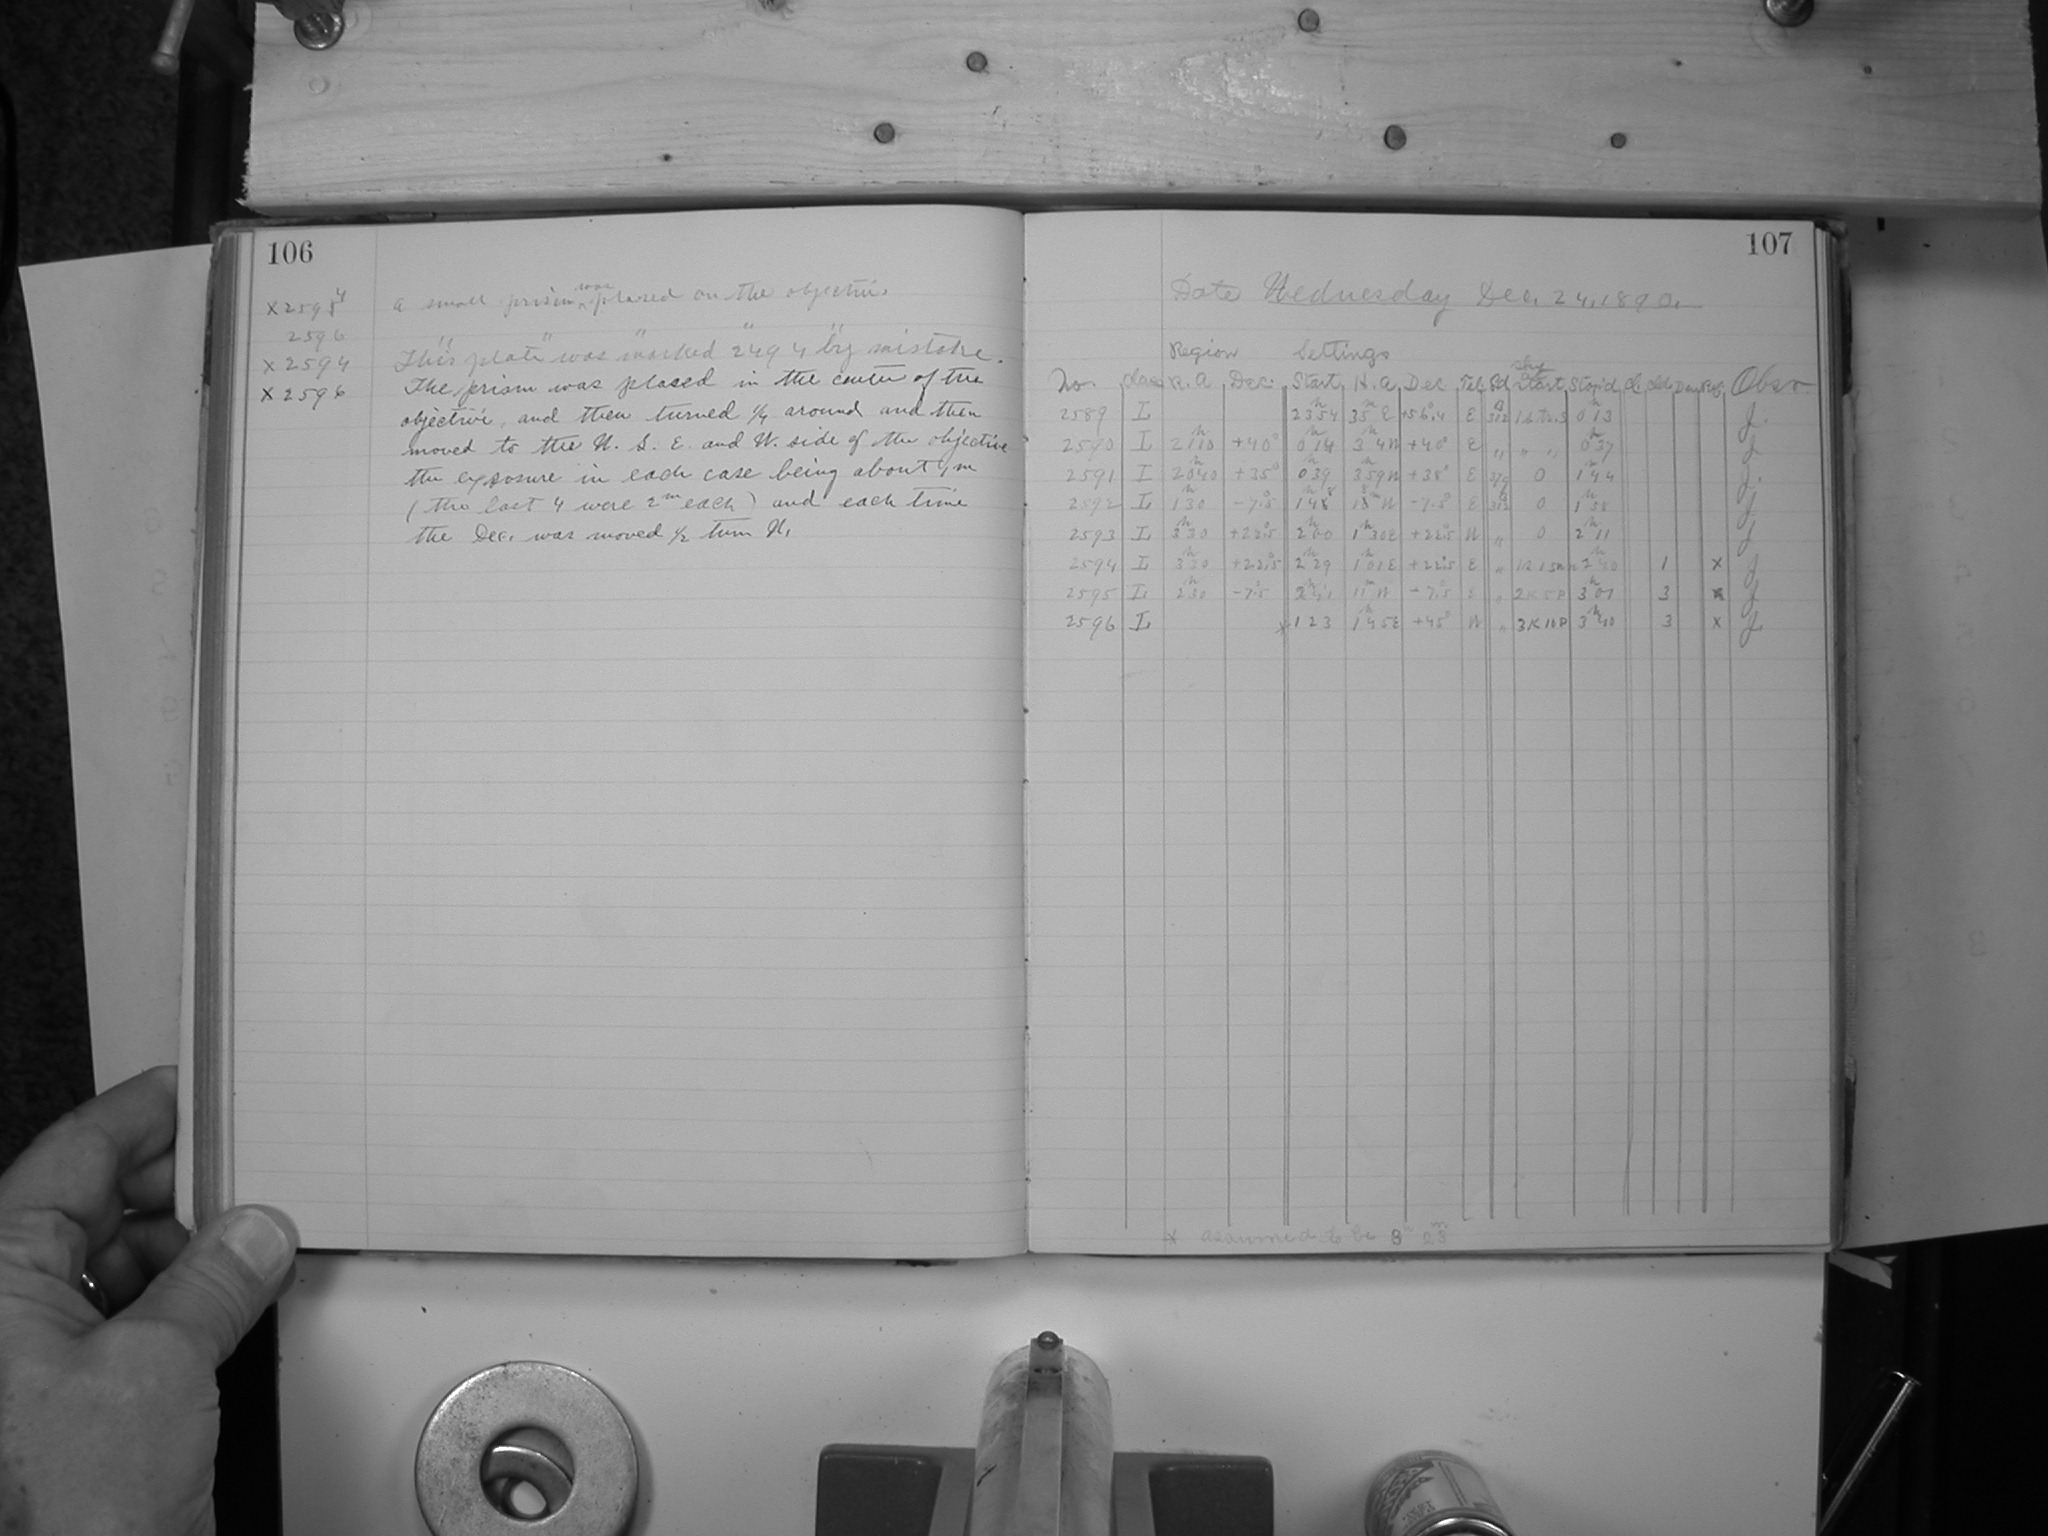 106
x 2595 4 a small prism was placed on the objective.
2596 " " " " "
x 2594 This plate was marked 2494 by mistake.
x 2596 The prism was placed in the center of the
objective, and then turned 1/4 around and then
moved to the N. S. E. and W. side of the objective
the exposure in each case being about 1m
(the last 4 were 2m each) and each time
the Dec. was moved 1/2 turn N.
107
Date Wednesday Dec. 24, 1890.
Region Settings
No. Class R.A Dec. Start H.A Dec Tel. Rd Sky at Start Stop'd Obsr.
2589 L 23 54 35m E +56°.4 E 312 0h 13 J.
2590 L 21h 10 +40° 0h 14 3h 4 W +40° E " " " 0h 37 J
2591 L 20h 40 +35° 0h 39 3h 59 W +38° E 0 1h 44 J.
2592 L 1h 30 -7°.5 1h 48 18m W -7°.5 E 312 0 1h 58 J
2593 L 3h 30 +22°.5 2h 00 1h 30 E +22°.5 W " 0 2h 11 J
2594 L 3h 30 +22°.5 2h 29 1h 01 E +22°.5 E " 2h 40 1 x J
2595 L 2h 30 -7°.5 11m W -7°.5 E " 2K5P 3h 01 3 x J
2596 L x 1 23 1h 45 E +45° W " 3K10P 3h 40 3 x J.
x assumed to be 3h 23m